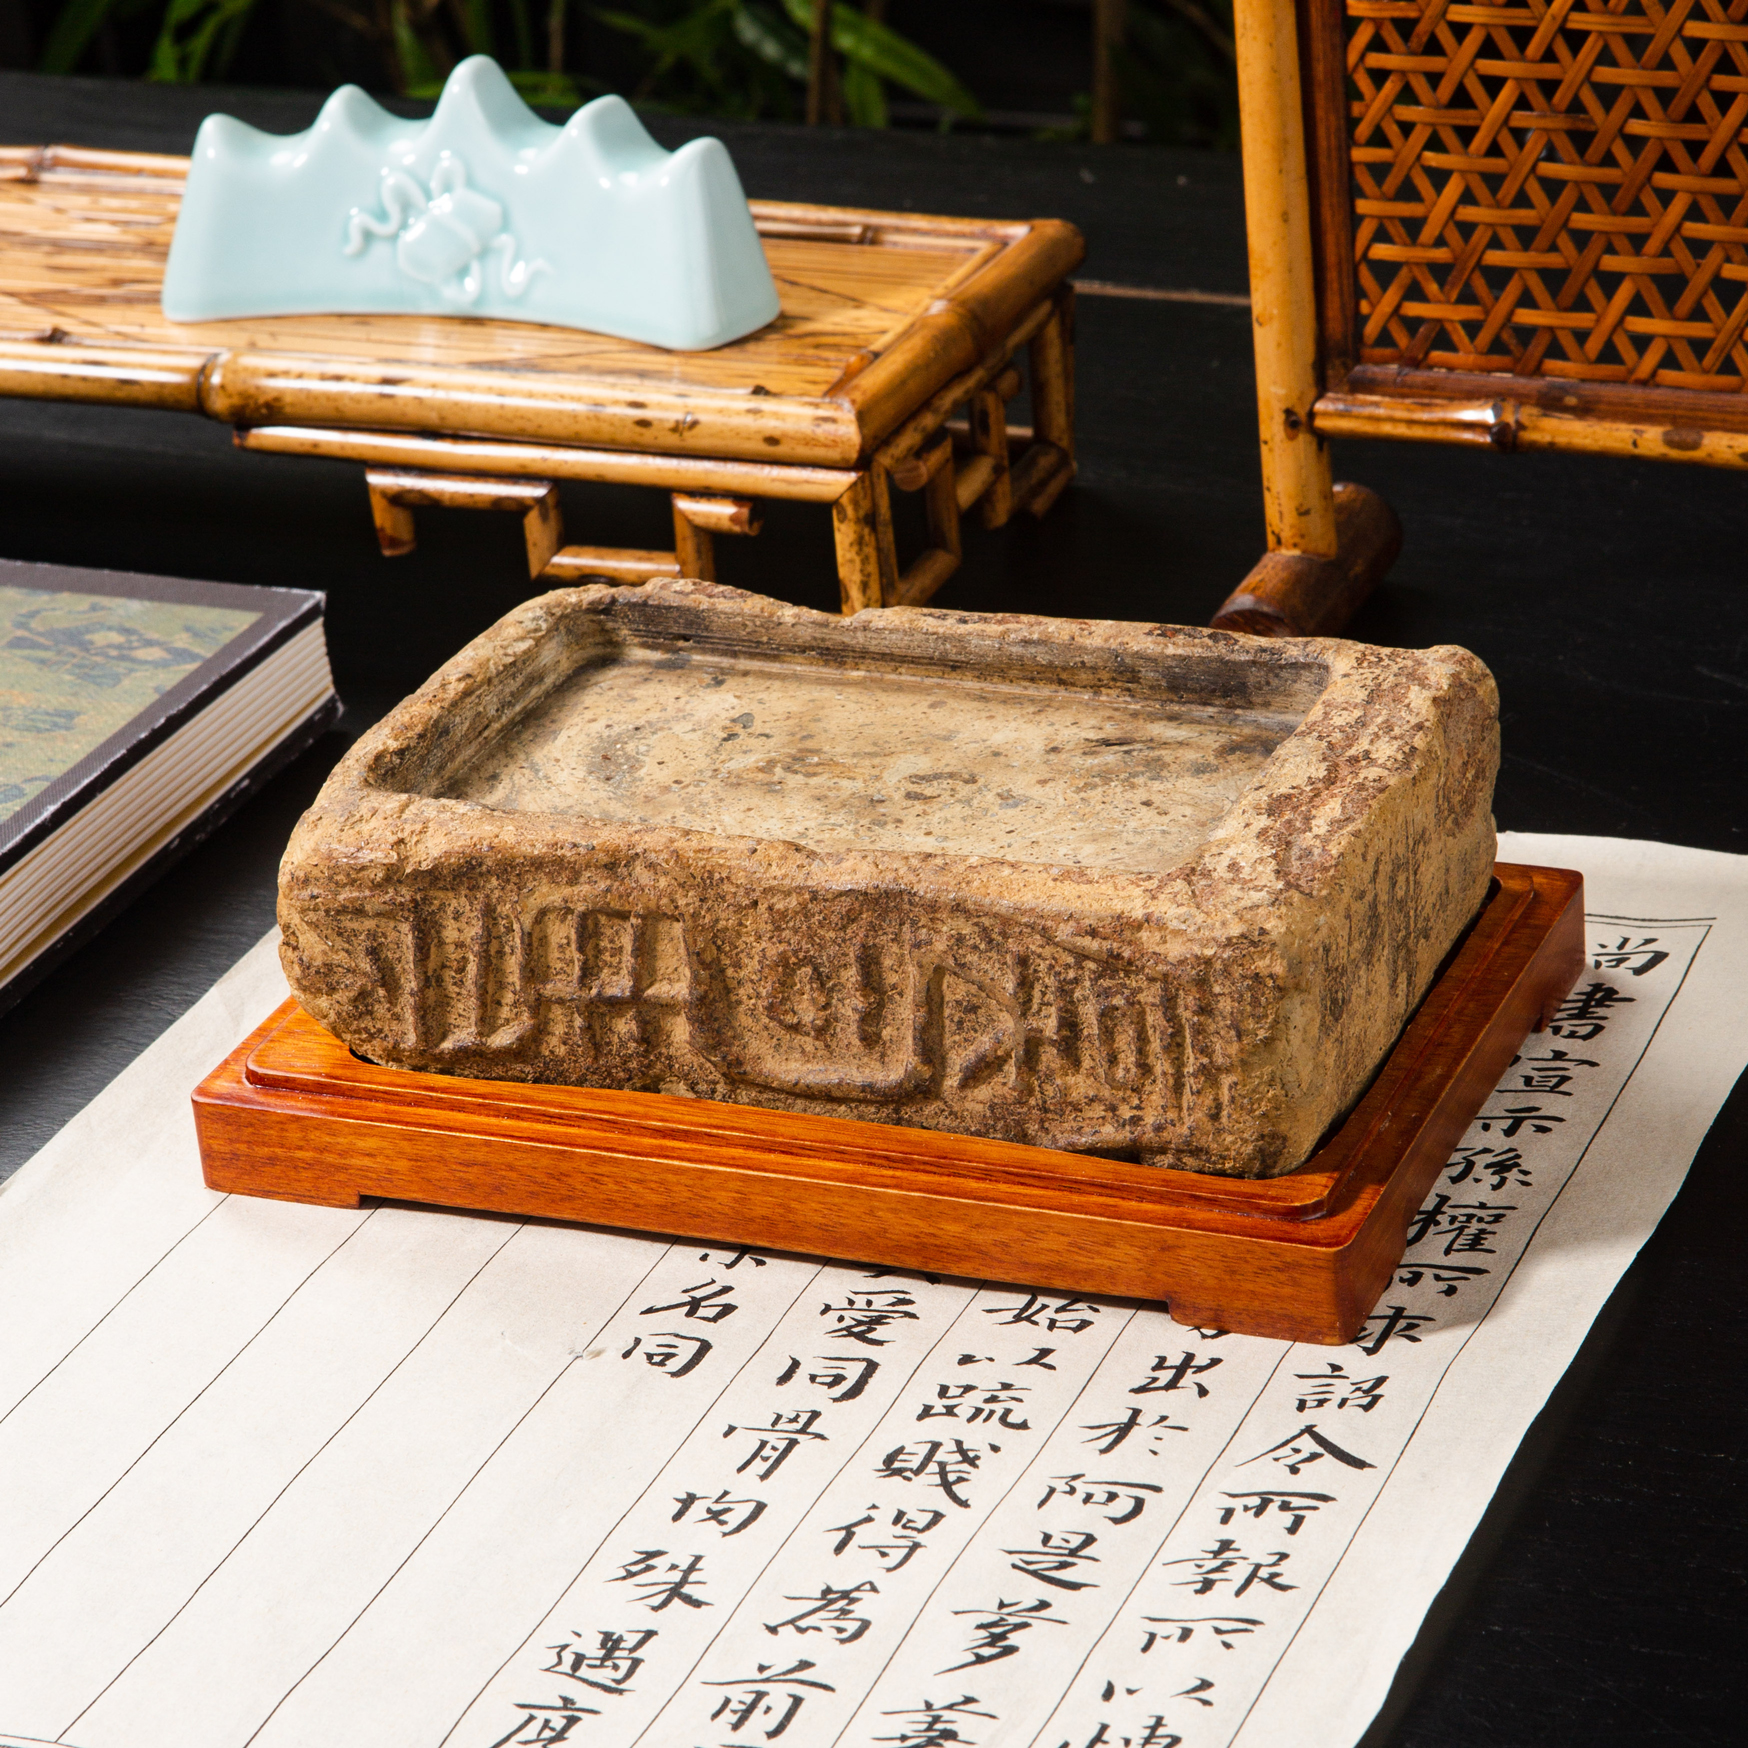 尚書宣示孫權所求詔令所報所以博
出於阿是芻蕘
始以疏賤得為前
愛同骨肉殊遇厚
名同